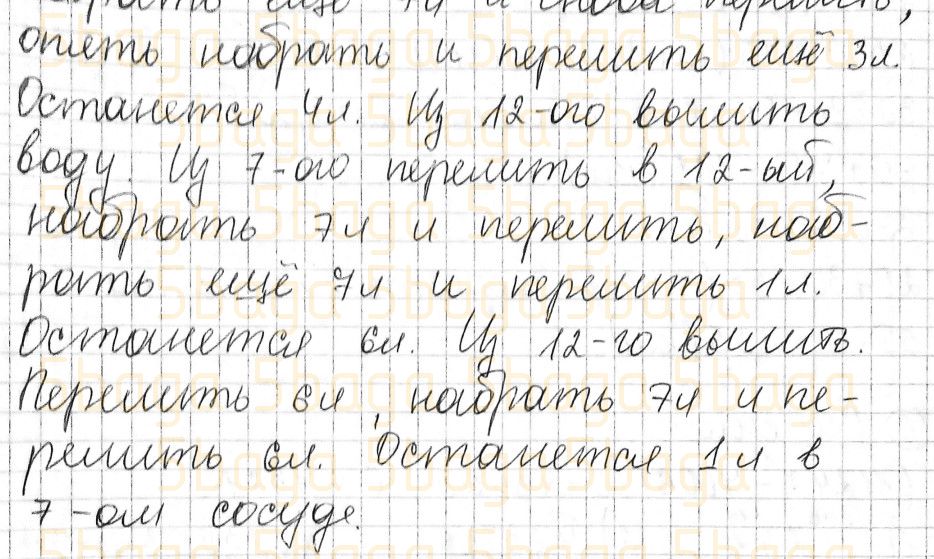 ещё 7л и снова перелить,
опять набрать и перелить ещё 3л.
Останется 4л. Из 12-ого вылить
воду. Из 7-ого перелить в 12-ый,
набрать 7л и перелить, наб-
рать ещё 7л и перелить 1л.
Останется 6л. Из 12-го вылить.
Перелить 6л, набрать 7л и пе-
релить 6л. Останется 1л в
7-ом сосуде.